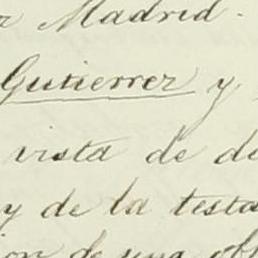 r Madrid.
Gutierrez y
vista de de
y de la testa
ion de una obl